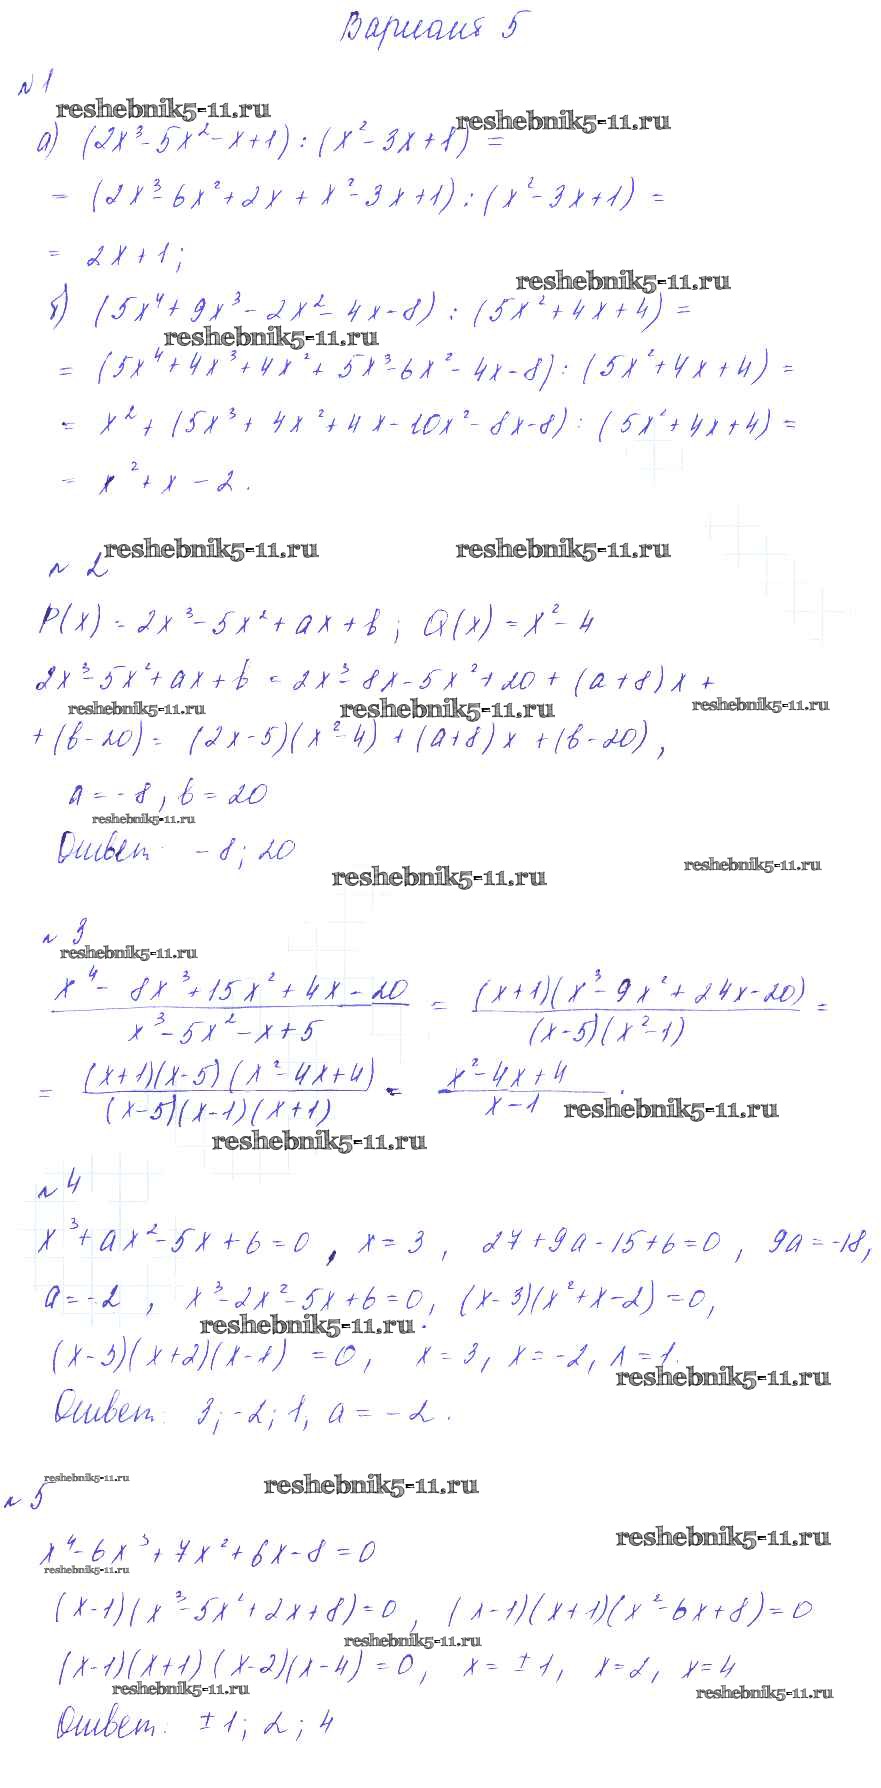 Вариант 5
№ 1
reshebnik5-11.ru
reshebnik5-11.ru
а) (2x³-5x²-x+1) : (x²-3x+1) =
= (2x³-6x²+2x+x²-3x+1) : (x²-3x+1) =
= 2x+1;
reshebnik5-11.ru
б) (5x⁴+9x³-2x²-4x-8) : (5x²+4x+4) =
reshebnik5-11.ru
= (5x⁴+4x³+4x²+5x³-6x²-4x-8) : (5x²+4x+4) =
= x²+(5x³+4x²+4x-10x²-8x-8) : (5x²+4x+4) =
= x²+x-2.
reshebnik5-11.ru reshebnik5-11.ru
№ 2
P(x) = 2x³-5x²+ax+b; Q(x) = x²-4
2x³-5x²+ax+b = 2x³-8x-5x²+20+(a+8)x+
reshebnik5-11.ru reshebnik5-11.ru reshebnik5-11.ru
+(b-20) = (2x-5)(x²-4)+(a+8)x+(b-20),
a = -8, b = 20
reshebnik5-11.ru
Ответ: -8; 20
reshebnik5-11.ru reshebnik5-11.ru
№ 3
reshebnik5-11.ru
x⁴-8x³+15x²+4x-20 / x³-5x²-x+5 = (x+1)(x³-9x²+24x-20) / (x-5)(x²-1) =
= (x+1)(x-5)(x²-4x+4) / (x-5)(x-1)(x+1) = x²-4x+4 / x-1.
reshebnik5-11.ru
reshebnik5-11.ru
№ 4
x³+ax²-5x+6=0, x=3, 27+9a-15+6=0, 9a=-18,
a=-2, x³-2x²-5x+6=0, (x-3)(x²+x-2)=0,
reshebnik5-11.ru
(x-3)(x+2)(x-1)=0, x=3, x=-2, x=1.
reshebnik5-11.ru
Ответ: 3; -2; 1, a=-2.
reshebnik5-11.ru reshebnik5-11.ru
№ 5
reshebnik5-11.ru
x⁴-6x³+7x²+6x-8=0
reshebnik5-11.ru
(x-1)(x³-5x²+2x+8)=0, (x-1)(x+1)(x²-6x+8)=0
reshebnik5-11.ru
(x-1)(x+1)(x-2)(x-4)=0, x=±1, x=2, x=4
reshebnik5-11.ru reshebnik5-11.ru
Ответ: ±1; 2; 4